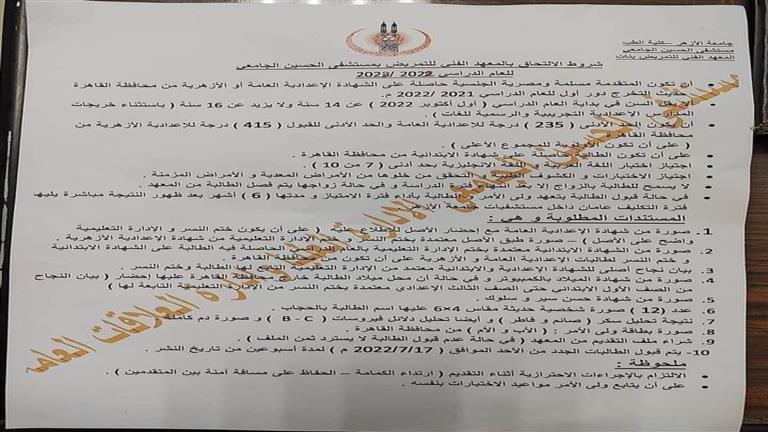 جامعة الأزهر – كلية الطب
مستشفى الحسين الجامعي
المعهد الفنى للتمريض بنات
شروط الالتحاق بالمعهد الفنى للتمريض بمستشفى الحسين الجامعي
للعام الدراسي 2022 /
أن تكون المتقدمة مسلمة ومصرية الجنسية حاصلة على الشهادة الإعدادية العامة أو الأزهرية من محافظة القاهرة
التخرج دور أول للعام الدراسي 2021 /2022 م.
ألا يقل السن في بداية العام الدراسي ( أول أكتوبر 2022 ) عن 14 سنة ولا يزيد عن 16 سنة ( باستثناء خريجات
المدارس الإعدادية التجريبية والرسمية للغات ) .
أن يكون الحد الأدنى ( 235 ) درجة للإعدادية العامة والحد الأدنى للقبول ( 415 ) درجة للإعدادية الأزهرية من
محافظة القاهرة
( على أن تكون الأولوية للمجموع الأعلى )
على أن تكون الطالبة حاصلة على شهادة الابتدائية من محافظة القاهرة .
اجتياز اختبار اللغة العربية و اللغة الانجليزية بحد أدنى ( 7 من 10 ) .
اجتياز الاختبارات و الكشوف الطبية و التحقق من خلوها من الأمراض المعدية و الأمراض المزمنة .
لا يسمح للطالبة بالزواج إلا بعد انتهاء فترة الدراسة و في حالة زواجها يتم فصل الطالبة من المعهد .
في حالة قبول الطالبة يتعهد ولى الأمر و الطالبة بأداء فترة الامتياز و مدتها ( 6 ) أشهر بعد ظهور النتيجة مباشرة يليها
فترة التكليف عامان داخل مستشفيات جامعة الأزهر
المستندات المطلوبة و هي :
1. صورة من شهادة الإعدادية العامة مع إحضار الأصل للإطلاع عليه ( على أن يكون ختم النسر و الإدارة التعليمية
واضح على الأصل ) – صورة طبق الأصل معتمدة بختم النسر و ختم الإدارة التعليمية من شهادة الإعدادية الأزهرية .
2. صورة من الشهادة الابتدائية معتمدة بختم الإدارة التعليمية الدراسي الحاصلة فيه الطالبة على الشهادة الابتدائية
و ختم النسر لطالبات الإعدادية العامة و الأزهرية على أن تكون من محافظة القاهرة .
3. بيان نجاح أصلى للشهادة الإعدادية والابتدائية معتمد من الإدارة التعليمية التابع لها الطالبة وختم النسر .
4. صورة من شهادة الميلاد بالكمبيوتر و في حالة أن محل ميلاد الطالبة خارج محافظة القاهرة عليها إحضار ( بيان النجاح
من الصف الأول الابتدائي حتى الصف الثالث الإعدادي معتمدة بختم النسر من الإدارة التعليمية التابعة لها )
5. صورة من شهادة حسن سير و سلوك .
6. عدد (12) صورة شخصية حديثة مقاس 4×6 عليها اسم الطالبة بالحجاب .
7. نتيجة تحليل سكر ( صائم و فاطر ) و أيضا تحليل دلائل فيروسات ( B - C ) و صورة دم كاملة
8. صورة بطاقة ولى الأمر : ( الأب و الأم ) من محافظة القاهرة .
9. شراء ملف التقديم من المعهد ( في حالة عدم قبول الطالبة لا يسترد ثمن الملف ) .
10- يتم قبول الطالبات الجدد من الأحد الموافق ( 2022/7/17 م ) لمدة أسبوعين من تاريخ النشر .
ملحوظة :
الالتزام بالإجراءات الاحترازية أثناء التقديم ( ارتداء الكمامة – الحفاظ على مسافة آمنة بين المتقدمين ) .
على أن يتابع ولى الأمر مواعيد الاختبارات بنفسه .